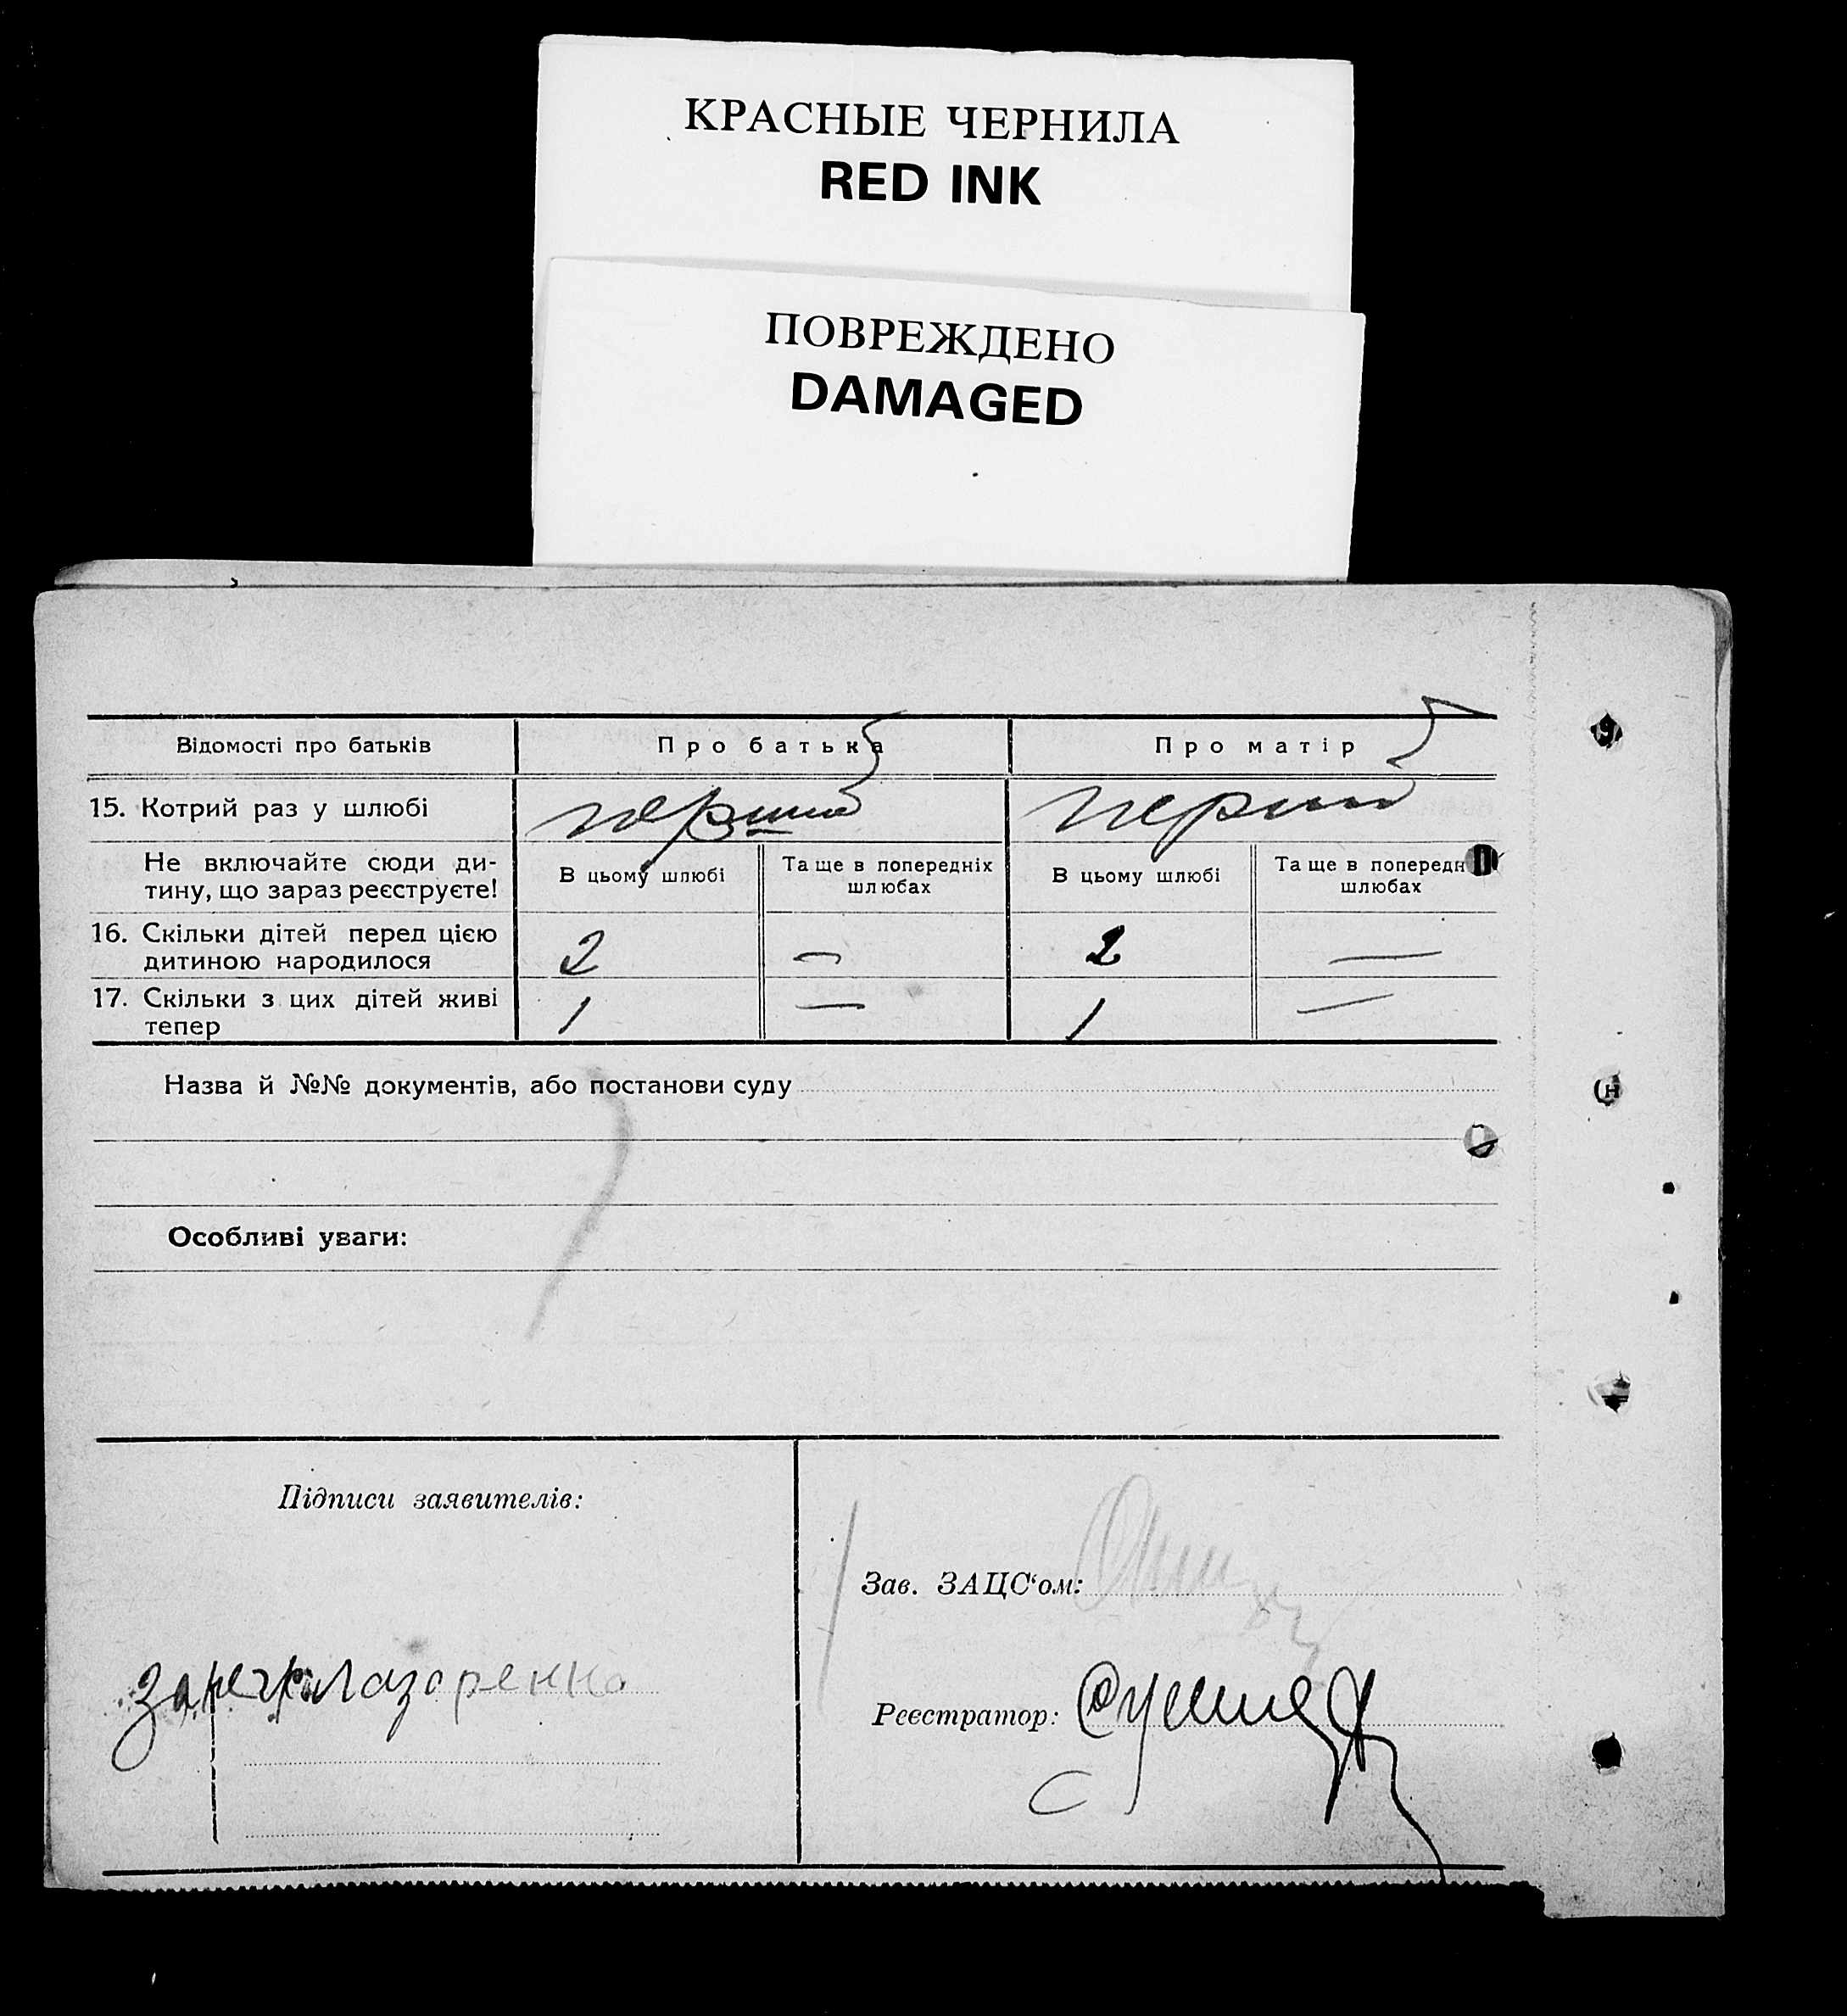 КРАСНЫЕ ЧЕРНИЛА
RED INK
ПОВРЕЖДЕНО
DAMAGED
Відомості про батьків Про батька Про матір
15. Котрий раз у шлюбі перший перший
Не включайте сюди ди-
тину, що зараз реєструєте!
В цьому шлюбі Та ще в попередніх
шлюбах
В цьому шлюбі Та ще в попередн
шлюбах
16. Скільки дітей перед цією
дитиною народилося 2 — 2 —
17. Скільки з цих дітей живі
тепер 1 — 1 —
Назва й №№ документів, або постанови суду
Особливі уваги:
Підписи заявителів:
Зав. ЗАЦС‘ом:
Лазоренко
Реєстратор: